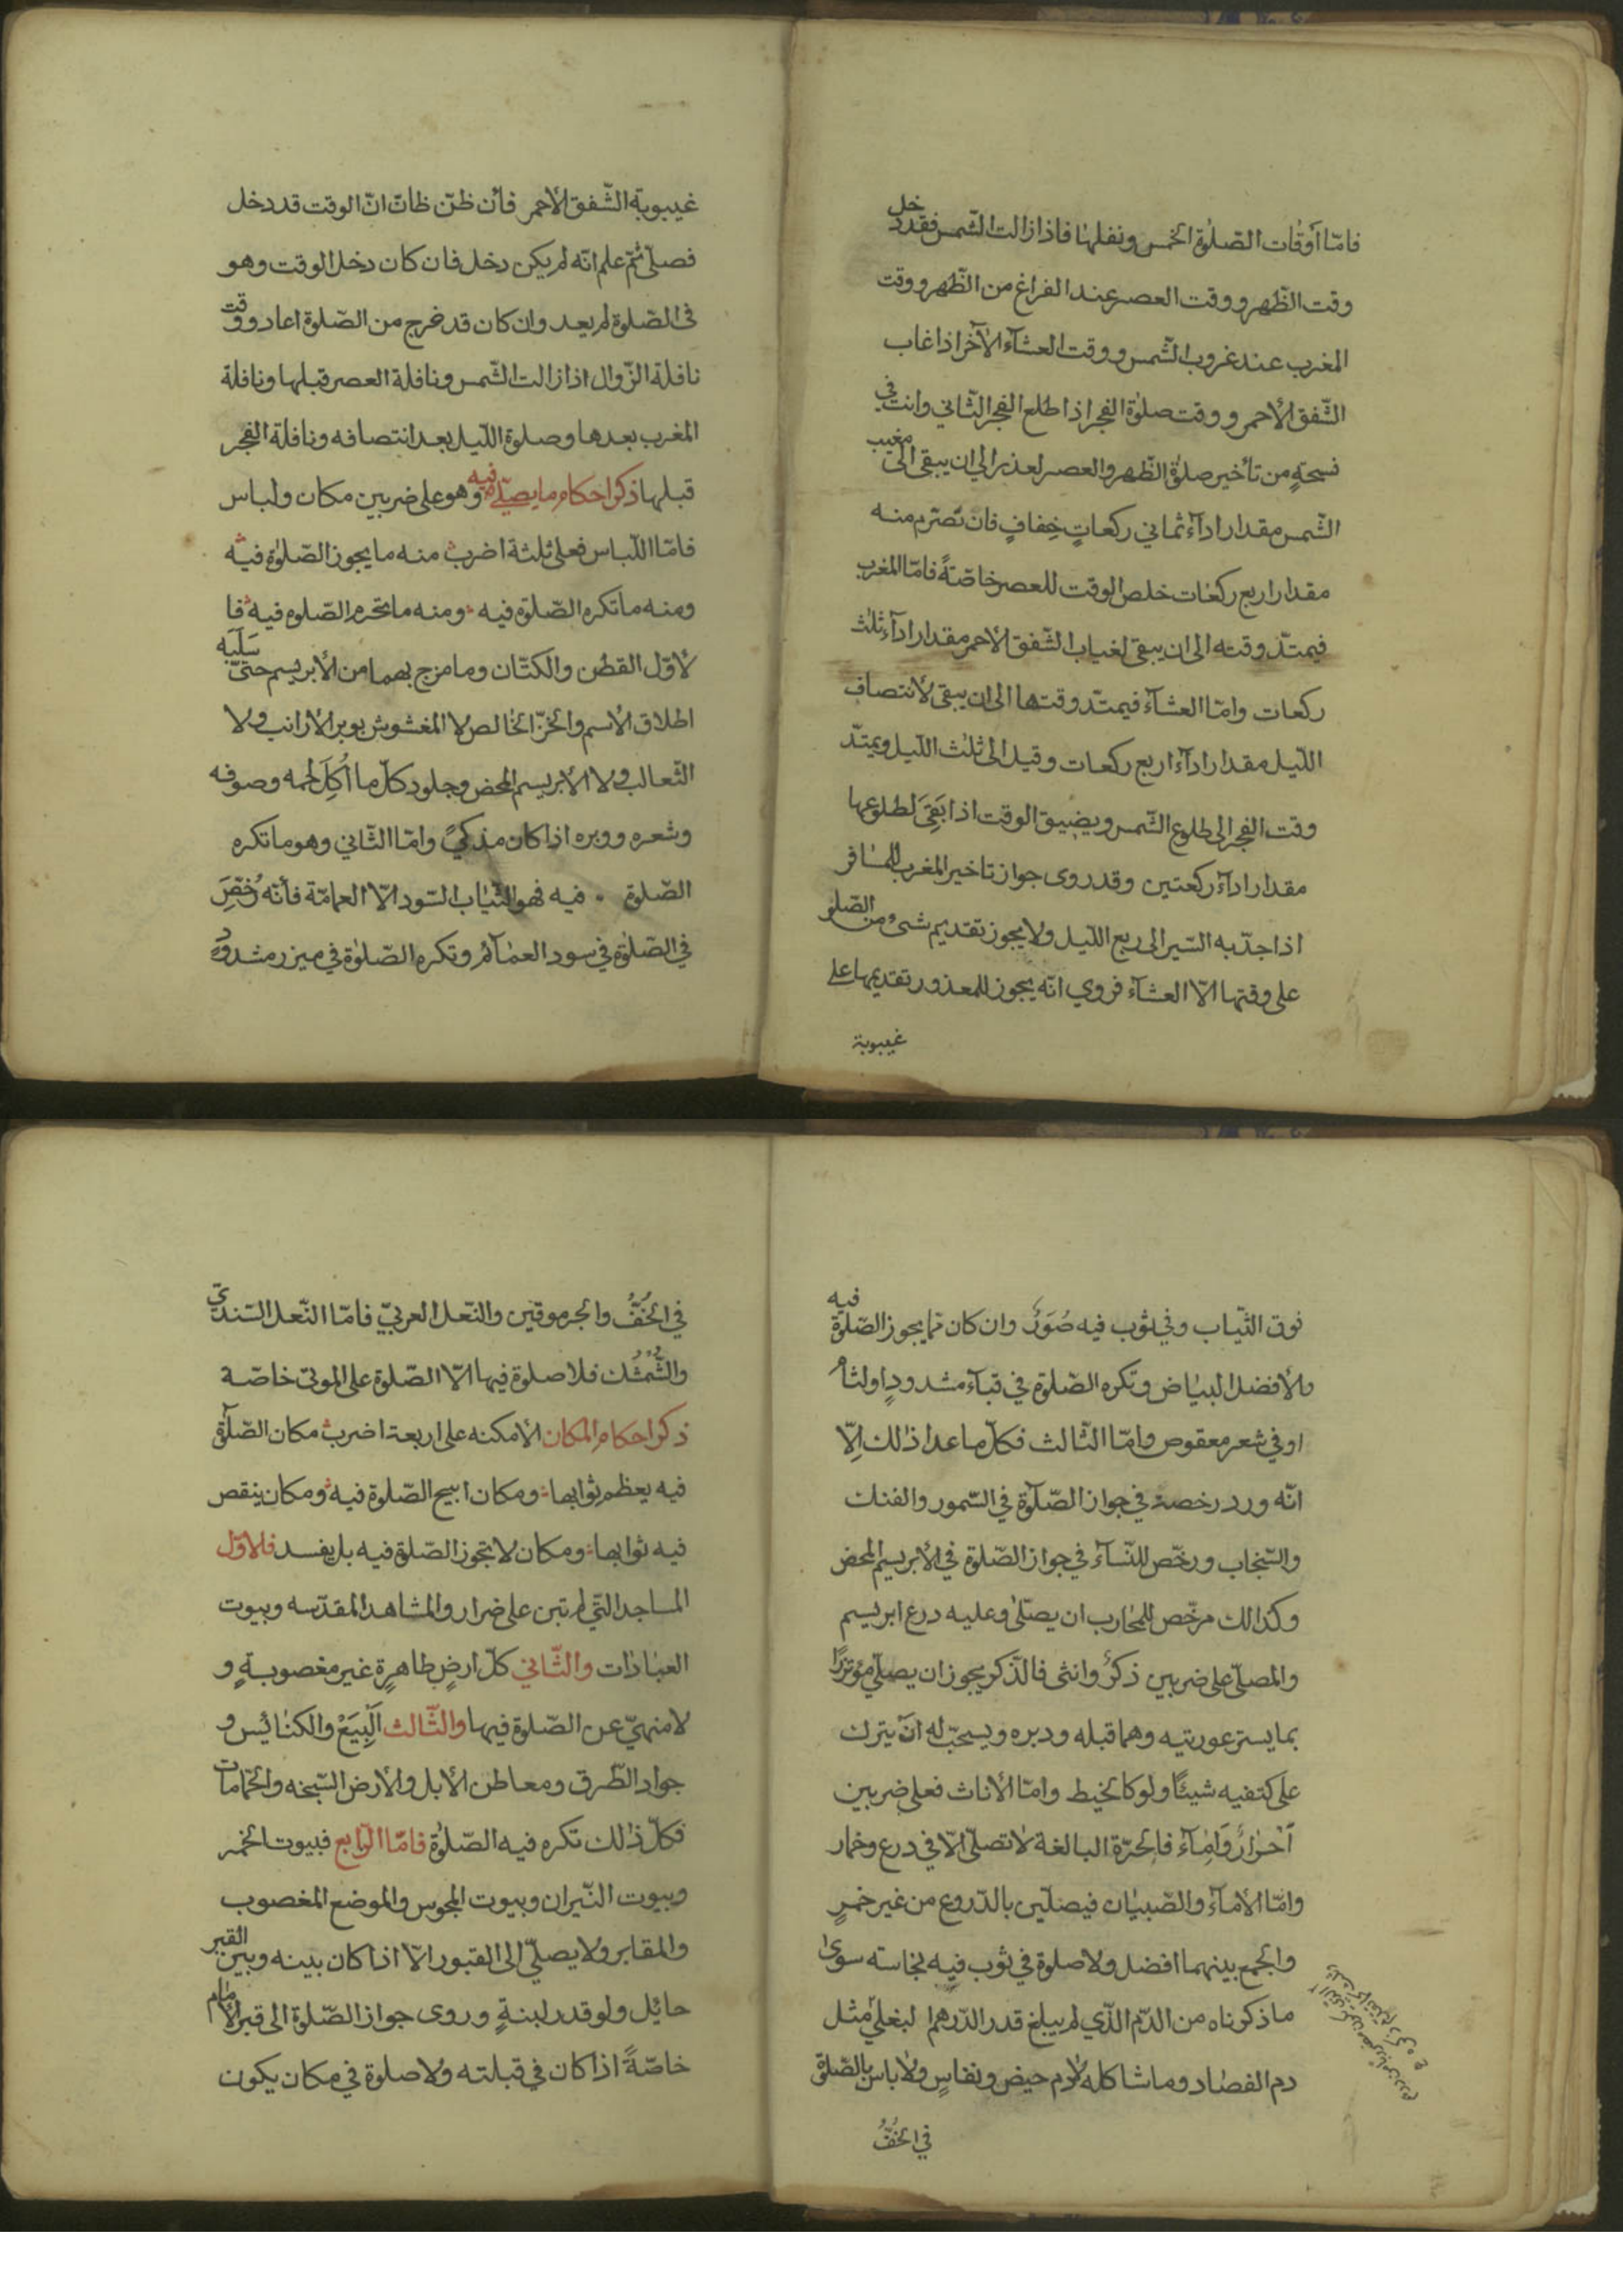 فامّا أوقات الصّلوة الخمس ونفلها فاذا زالت الشّمس فقد دخل
وقت الظّهر ووقت العصر عند الفراغ من الظّهر ووقت
المغرب عند غروب الشّمس ووقت العشآء الآخر اذا غاب
الشّفق الأحمر ووقت صلوة الفجر اذا طلع الفجر الثّاني وانت في
فسحةٍ من تأخير صلوة الظّهر والعصر لعذر الى ان يبقى الى مغيب
الشّمس مقدار ادآء ثماني ركعاتٍ خِفافٍ فان تصّرم منه
مقدار اربع ركعات خلص الوقت للعصر خاصّةً فامّا المغرب
فيمتدّ وقته الى ان يبقى لغياب الشّفق الأحمر مقدار ادآء ثلث
ركعات وامّا العشآء فيمتدّ وقتها الى ان يبقى لأنتصاف
اللّيل مقدار ادآء اربع ركعات وقيل الى ثلث اللّيل ويمتدّ
وقت الفجر الى طلوع الشّمس ويضيق الوقت اذا بَقِيَ لطلوعها
مقدار ادآء ركعتين وقد روى جواز تاخير المغرب للمسافر
اذا جدّ به السّير الى ربع اللّيل ولا يجوز تقديم شىء من الصّلو
على وقتها الّا العشآء فروي انّه يجوز للمعذور تقديمها على
غيبوبة
غيبوبة الشّفق الأحمر فأن ظنّ ظانّ انّ الوقت قد دخل
فصلّى ثمّ علم انّه لم يكن دخل فان كان دخل الوقت وهو
فى الصّلوة لم يعد وان كان قد خرج من الصّلوة اعاد ووقت
نافلة الزّوال اذا زالت الشّمس ونافلة العصر قبلها ونافلة
المغرب بعدها وصلوة اللّيل بعد انتصافه ونافلة الفجر
قبلها ذكر احكام ما يصلّى فيه وهو على ضربين مكان ولباس
فامّا اللّباس فعلى ثلثة اضرب منه ما يجوز الصّلوة فيه
ومنه ما تكره الصّلوة فيه ومنه ما تحرم الصّلوه فيه فا
لأوّل القطن والكتّان وما مزج بهما من الأبريسم حتىّ سَلَبَه
اطلاق الأسم والخزّ الخالص لا المغشوش بوبر الأرانب ولا
الثّعالب ولا الأبريسم المحض وجلود كلّ ما أُكِلَ لحمه وصوفه
وشعره ووبره اذا كان مذكىً وامّا الثّاني وهو ما تكره
الصّلوة فيه فهو الثّياب السّود الّا العمامّة فأنّه رُخّصَ
في الصّلوة في سود العمآئم وتكره الصّلوة في ميزر مشدود
فوق الثّياب وفي ثوب فيه صُوَرٌ وان كان ممّا يجوز الصّلوة فيه
والأفضل البياض وتكره الصّلوة في قبآء مشدودٍ او لثام
او في شعر معقوص وامّا الثّالث فكلّ ما عدا ذالك اِلّا
انّه ورد رخصة في جواز الصّلوة في السّمور والفنك
والسّنجاب ورخّص للنّسآء في جواز الصّلوة في الأبريسم المحض
وكذالك مرخّص للمحارب ان يصلّى وعليه درع ابريسم
والمصلّى على ضربين ذكرٌ وانثى فالذّكر يجوز ان يصلّي مؤتزرًا
بما يستر عورتيه وهما قبله ودبره ويسحبّ له ان يترك
على كتفيه شيئًا ولو كالخيط وامّا الأناث فعلى ضربين
اَحْرارٌ وَاِمآء فالحرّة البالغة لا تصلّى الّا في درع وخمار
وامّا الأمآء والصّبيان فيصلّين بالدّروع من غير خمرٍ
والجمع بينهما افضل ولا صلوة في ثوب فيه نجاسته سوى
ما ذكرناه من الدّم الذّي لم يبلغ قدر الدّرهم لبغلي مثل
دم الفصاد وما شاكله لادم حيض ونفاسٍ ولا باس بالصّلوة
في الخُفُّ
في الخُفُّ والجرموقين والنّعل العربيّ فامّا النّعل السّنديّ
والشُّمْشُك فلا صلوة فيها الّا الصّلوة على الموتى خاصّة
ذكر احكام المكان الأمكنه على اربعة اضرب مكان الصّلوة
فيه يعظم ثوابها ومكان ابيح الصّلوة فيه ومكان ينقص
فيه ثوابها ومكان لا تجوز الصّلوة فيه بل يفسد فلاوّل
المساجد التّي لم تبن على ضرار والمشاهد المقدّسه وبيوت
العبادات والثّاني كلّ ارضٍ طاهرةٍ غير مغصوبةٍ و
لا منهيّ عن الصّلوة فيها والثّالث اَلْبِيَعْ والكنائس و
جواد الطّرق ومعاطن الأبل والأرض السّبخه والحمّامات
فكلّ ذالك تكره فيه الصّلوة فامّا الرّابع فبيوت الخمر
وبيوت النّيران وبيوت المجوس والموضع المغصوب
والمقابر ولا يصلّي الى القبور الّا اذا كان بينه وبين القبر
حائيل ولو قدر لبنةٍ وروى جواز الصّلوة الى قبر الأمام
خاصّةً اذا كان في قبلته ولا صلوة في مكان يكون